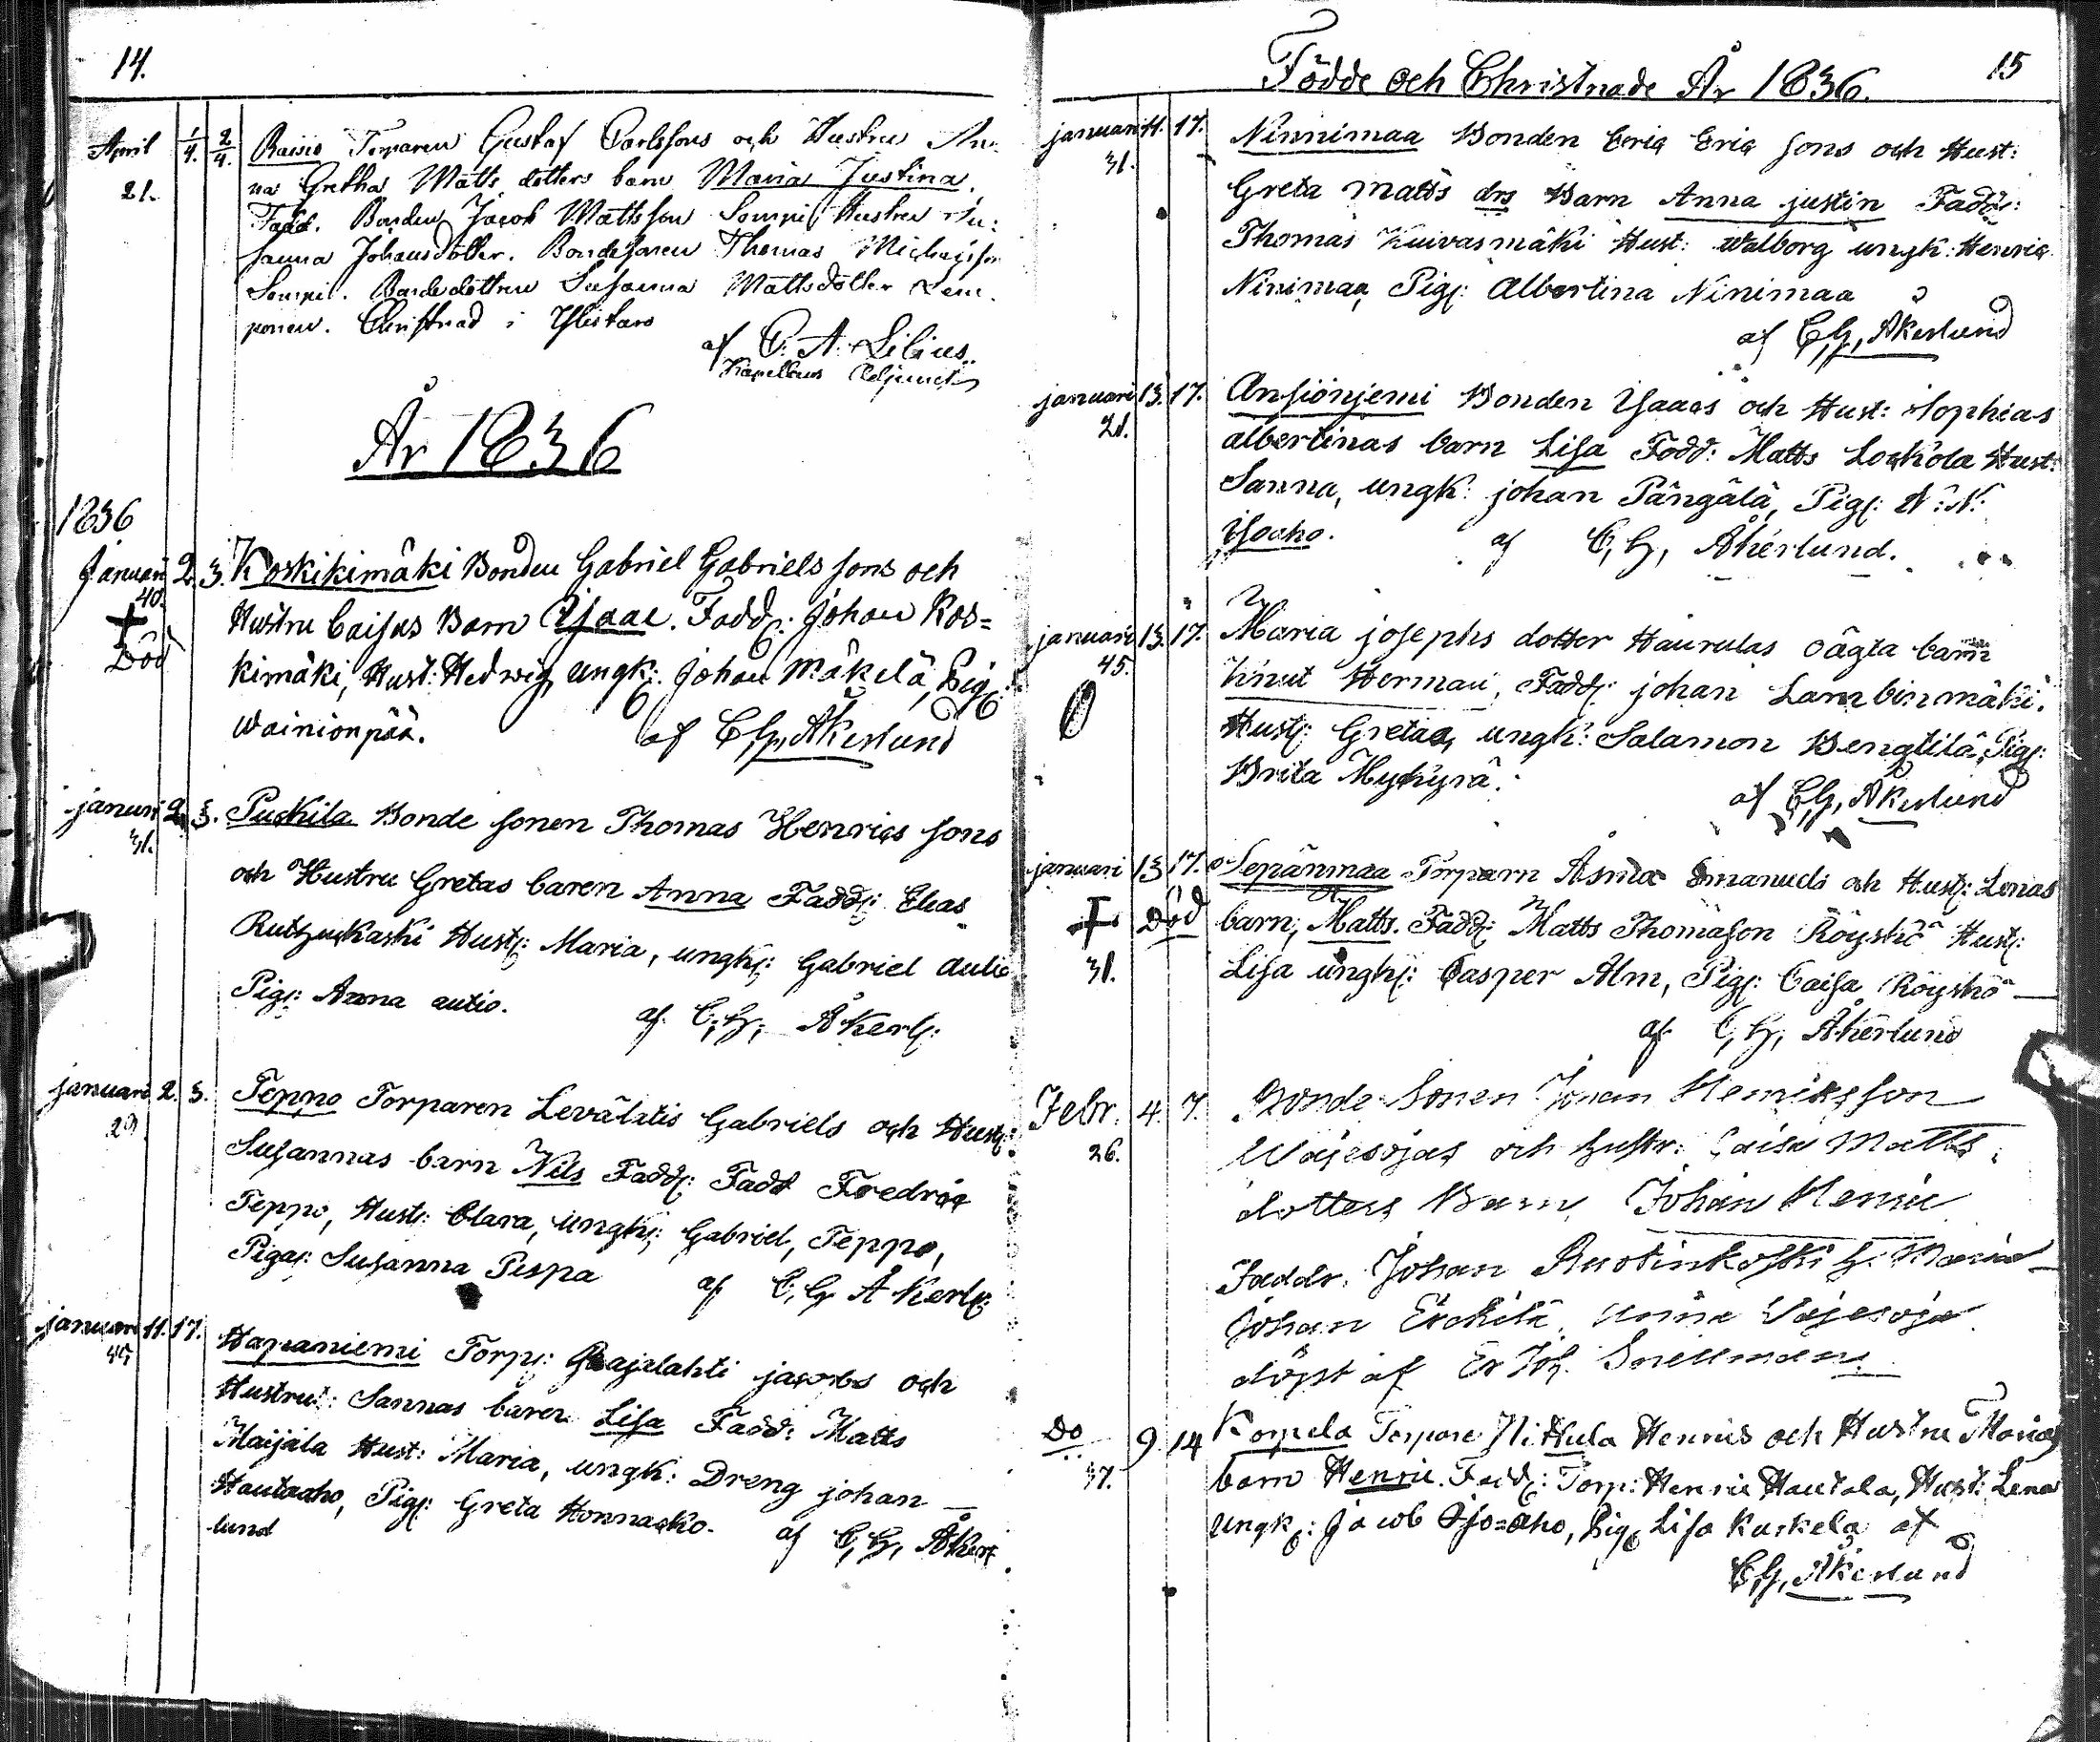 14.
April 1/4. 2/4. Raisio Torparen Gustaf Carlssons och Hustru An-
21. na Gretha Matts dotters barn Maria Justina.
Fadd. Bonden Jacob Mattsson Sompi, Hustru Su-
sanna Johansdotter. Bondesonen Thomas Michelsson
Sompi. Bondedottren Susanna Mattsdotter Lem-
ponen. Christnad i Ylistaro
af C. A. Lilius.
Kapellans Adjunct
År 1836
1836
Januari 2. 3. Koskikimäki Bonden Gabriel Gabriels sons och
40. Hustru Caisas Barn Isaac. Fadd: Johan Kos=
Död kimäki, Hust: Hedwig, ungk: Johan Mäkelä, Pig:
Wainionpää. af C,G, Åkerlund
januari 2. 3. Puckila Bonde sonen Thomas Henrics sons
31. och Hustru Gretas baren Anna Fadd: Elias
Kaski Hust: Maria, ungk: Gabriel autio
Pig: Anna autio. af. C,G, Åkerl:
januari 2. 3. Teppo Torparen Gabriels och Hust:
29 Susannas barn Nils Fadd: Fadd Fredric
Teppo, Hust: Clara, ungk: Gabriel, Teppo,
Piga: Susanna Pispa af C,G Åkerl:
januari 11. 17. Hapaniemi Torp: jacobs och
Hustru: Sannas baren Lisa Fadd: Matts
Maijala Hust: Maria, ungk: Dreng johan
Hautaaho, Pig: Greta Honnaoko. af C,G, Åker
lund
Födde och Christnade År 1836. 15
januari 11. 17. Ninnimaa Bonden Eric Eric sons och Hust:
31. Greta matts drs Barn Anna justin Fadd:
Thomas Kuivasmäki Hust: Walborg ungk: Henric
Ninimaa, Pig: Albertina Ninimaa
af C,G, Åkerlund
januari 13. 17. Ansiönjemi Bonden Isaacs och Hust: Sophias
21. albertinas barn Lisa Fadd: Matts Lockola Hust:
Sanna, ungk: johan Pångälä, Pig: N: N:
Isoaho. af C,G, Åkerlund.
januari 13. 17. Maria josephs dotter Haurulas oägta barn
45. Knut Herman, Fadd: johan Lambinmäki.
Hust: Greta, ungk: Salamon Bengtilä, Pig:
Brita Myhyrä. af C,G, Åkerlund
januari 13 17. Sepänmaa Torparn Emanuels och Hust: Lenas
Död barn, Matts. Fadd: Matts Thomason Röyskö Hust:
31. Lisa ungk: Casper Alm, Pig: Caisa Röyskö
af C,G, Åkerlund
Febr. 4. 7. Bonde Sonen Johan Henriksson
26. Wäjesojas och hustr: Caisa Matts
dotters Barn, Johan Henric
Faddr. Johan Ruotinkoski h. Maria
Johan Erkilä, Anna Wäjesoja
döpt af Er Joh. Snellman.
Do 9 14 Korpela Torpare Henrics och Hustru Marias
37. barn Henric. Fadd: Torp: Henric Hautala, Hust: Lena
ungk: Jacob aho, Pig: Lisa Kuckela af
C,G, Åkerlund